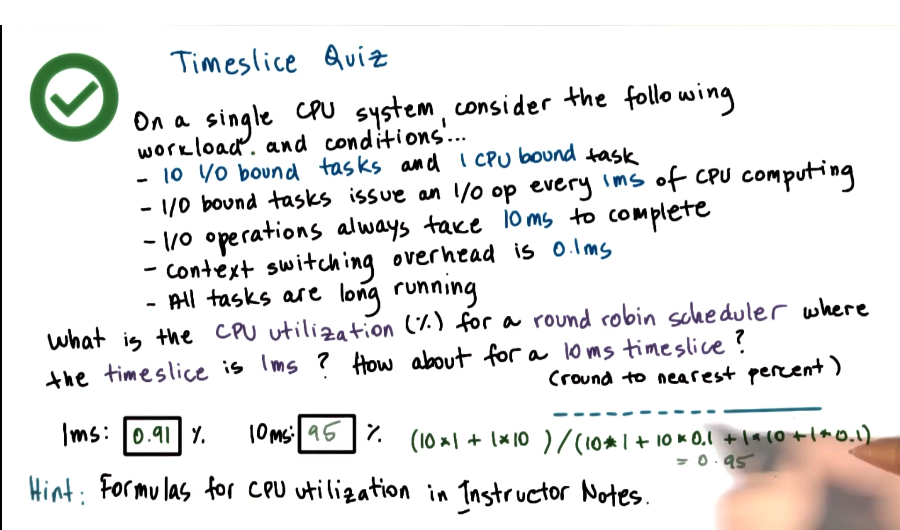 Timeslice Quiz
On a single CPU system, consider the following
workload. and conditions...
- 10 I/O bound tasks and 1 CPU bound task
- I/O bound tasks issue an I/o op every 1ms of CPU computing
- I/O operations always take 10ms to complete
- context switching overhead is 0.1ms
- All tasks are long running
What is the CPU utilization (%) for a round robin scheduler where
the timeslice is 1ms ? How about for a 10ms timeslice?
(round to nearest percent)
1ms: 0.91 % 10ms: 95 % (10*1 + 1*10 ) / (10*1 + 10*0.1 + 1*10 + 1*0.1)
= 0.95
Hint: Formulas for CPU utilization in Instructor Notes.